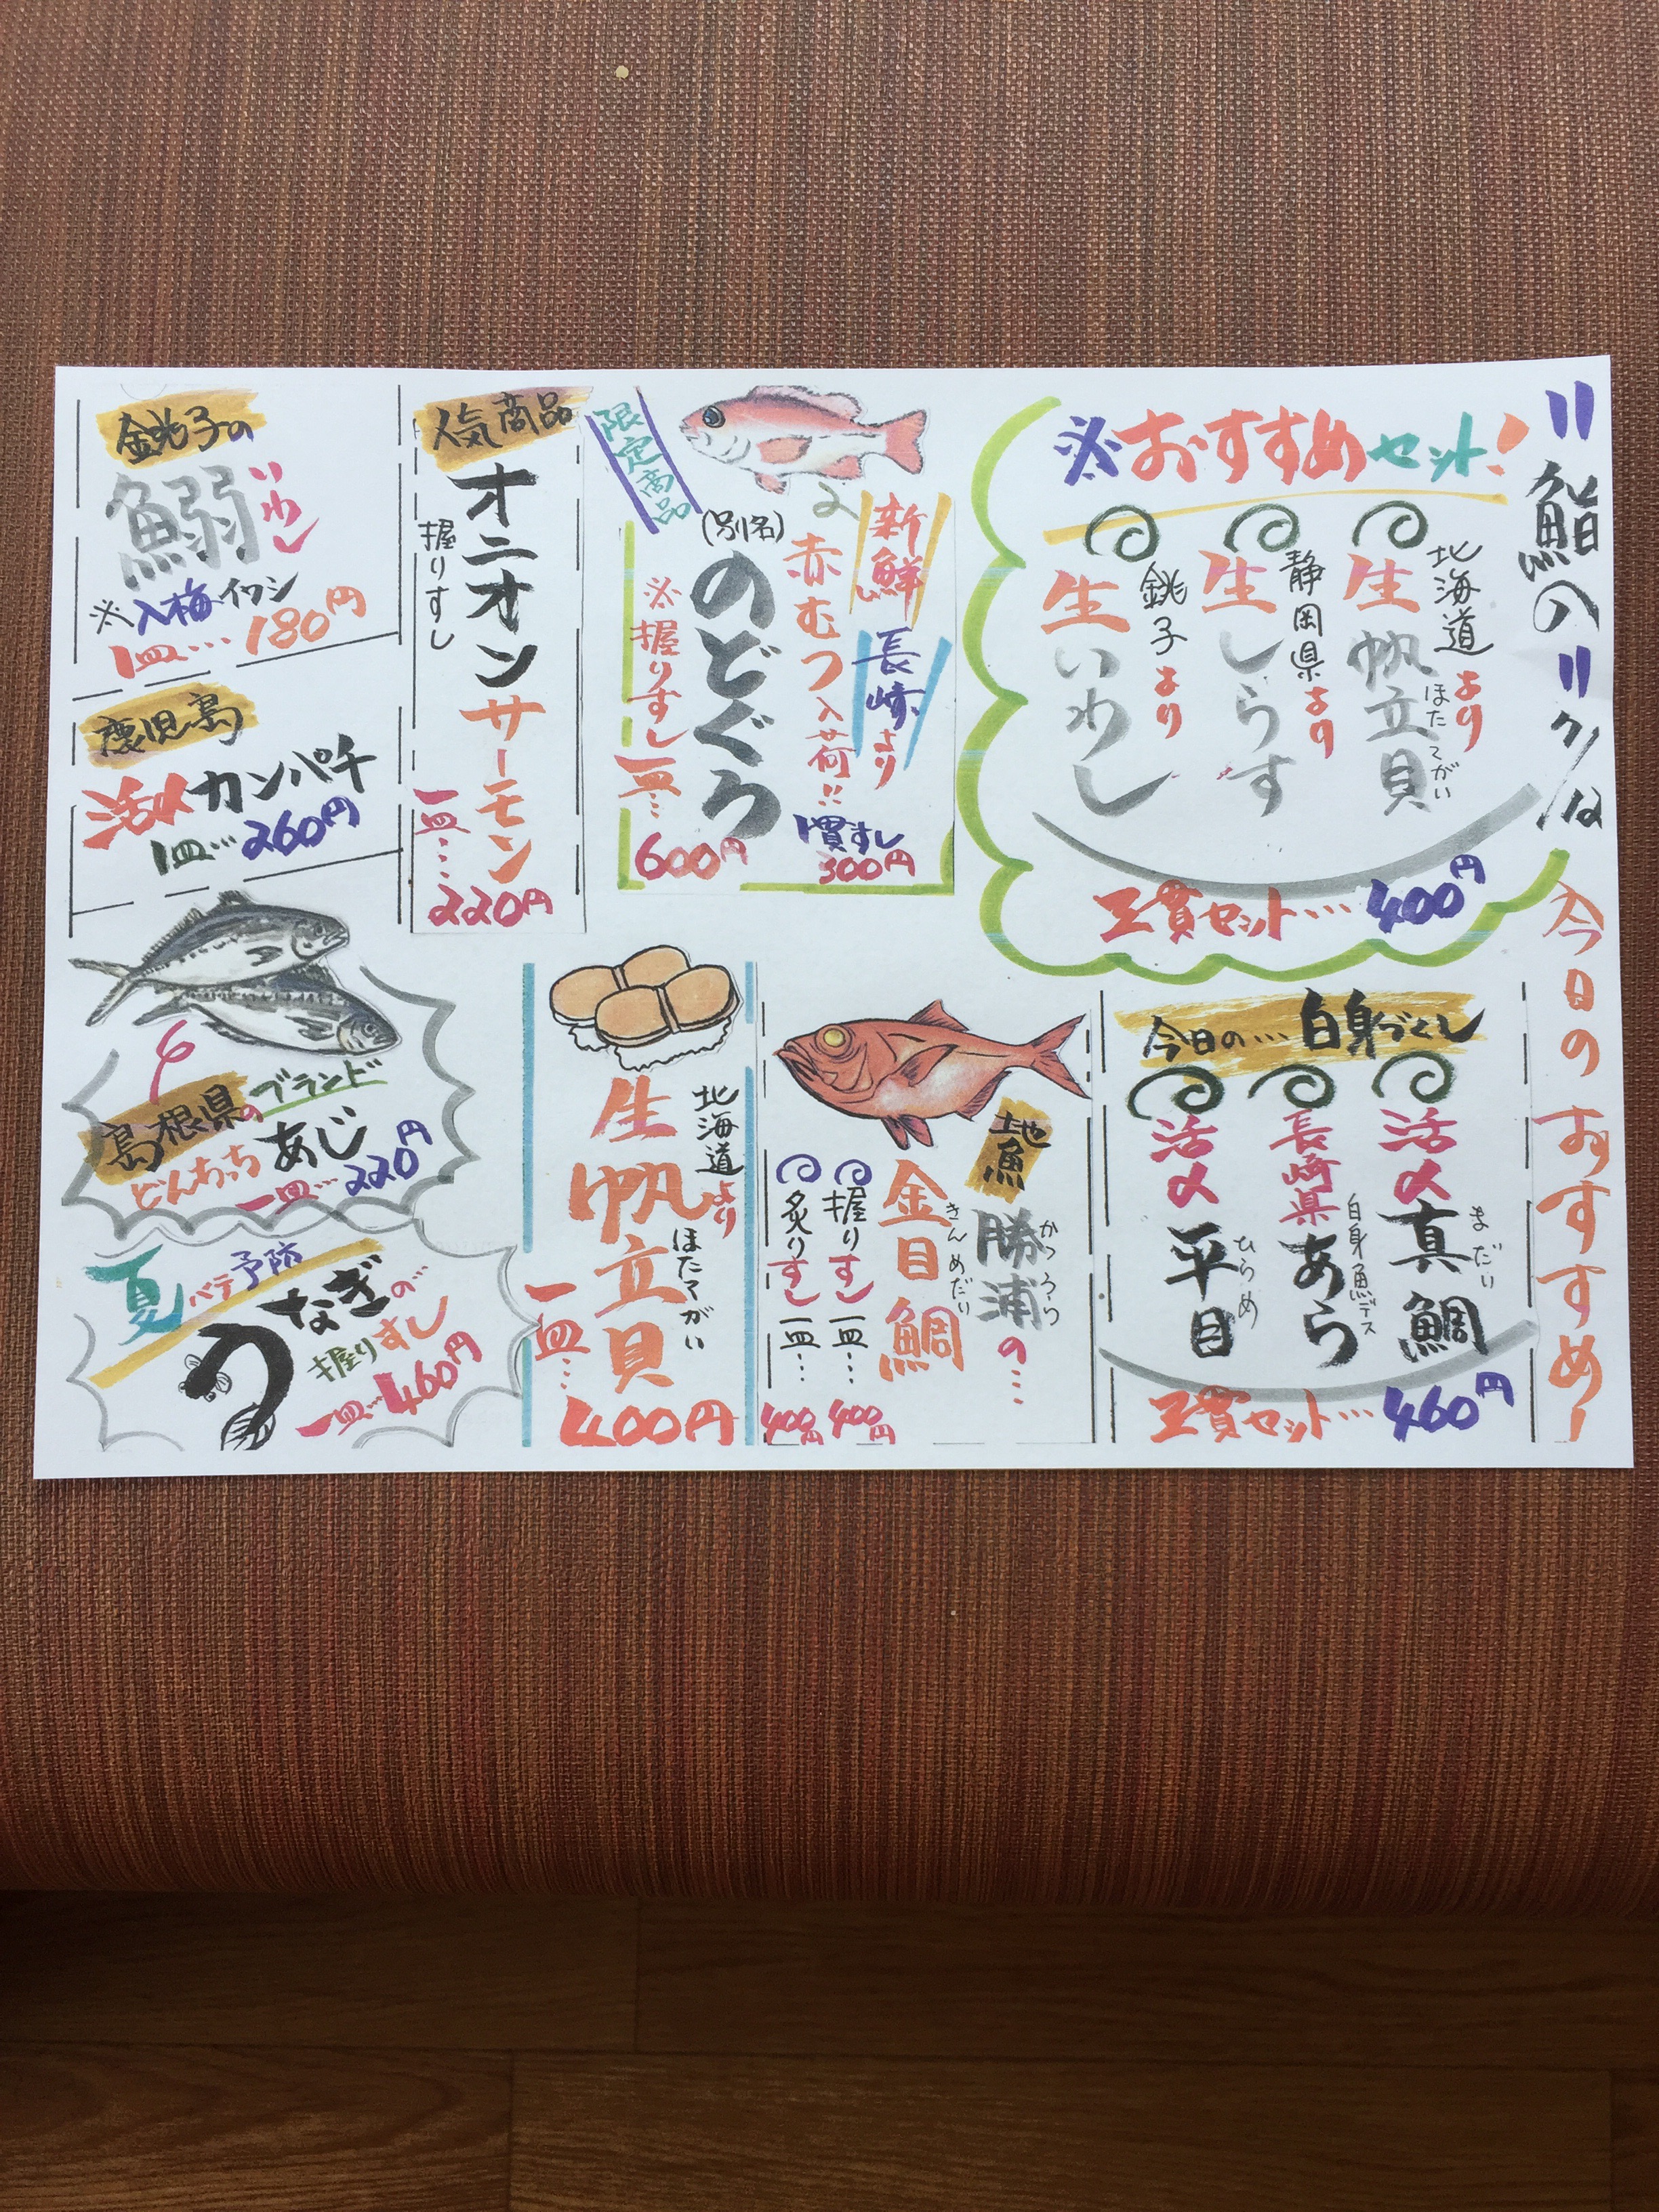 〃鮨の〃
今日のおすすめ!
※おすすめセット!
北海道より
生帆立貝
ほたてがい
静岡県より
生しらす
銚子より
生いわし
三貫セット…400円
今日の…白身づくし
活〆真鯛
まだい
長崎県あら
白身魚デス
活〆平目
ひらめ
三貫セット…460円
限定商品
新鮮
長崎より
赤むつ入荷!!
(別名)
のどぐろ
※握りすし一皿…
600円
1貫すし
300円
人気商品
オニオンサーモン
握りすし
一皿…
220円
銚子の
鰯
いわし
※入梅イワシ
1皿…180円
鹿児島
活〆カンパチ
1皿…260円
地魚
勝浦の…
かつうら
金目鯛
きんめだい
握りすし一皿…
400円
炙りすし一皿…
400円
北海道より
生帆立貝
ほたてがい
一皿…
400円
島根県のブランド
どんちっちあじ
一皿…220円
夏バテ予防
うなぎの…
握りすし
一皿…460円